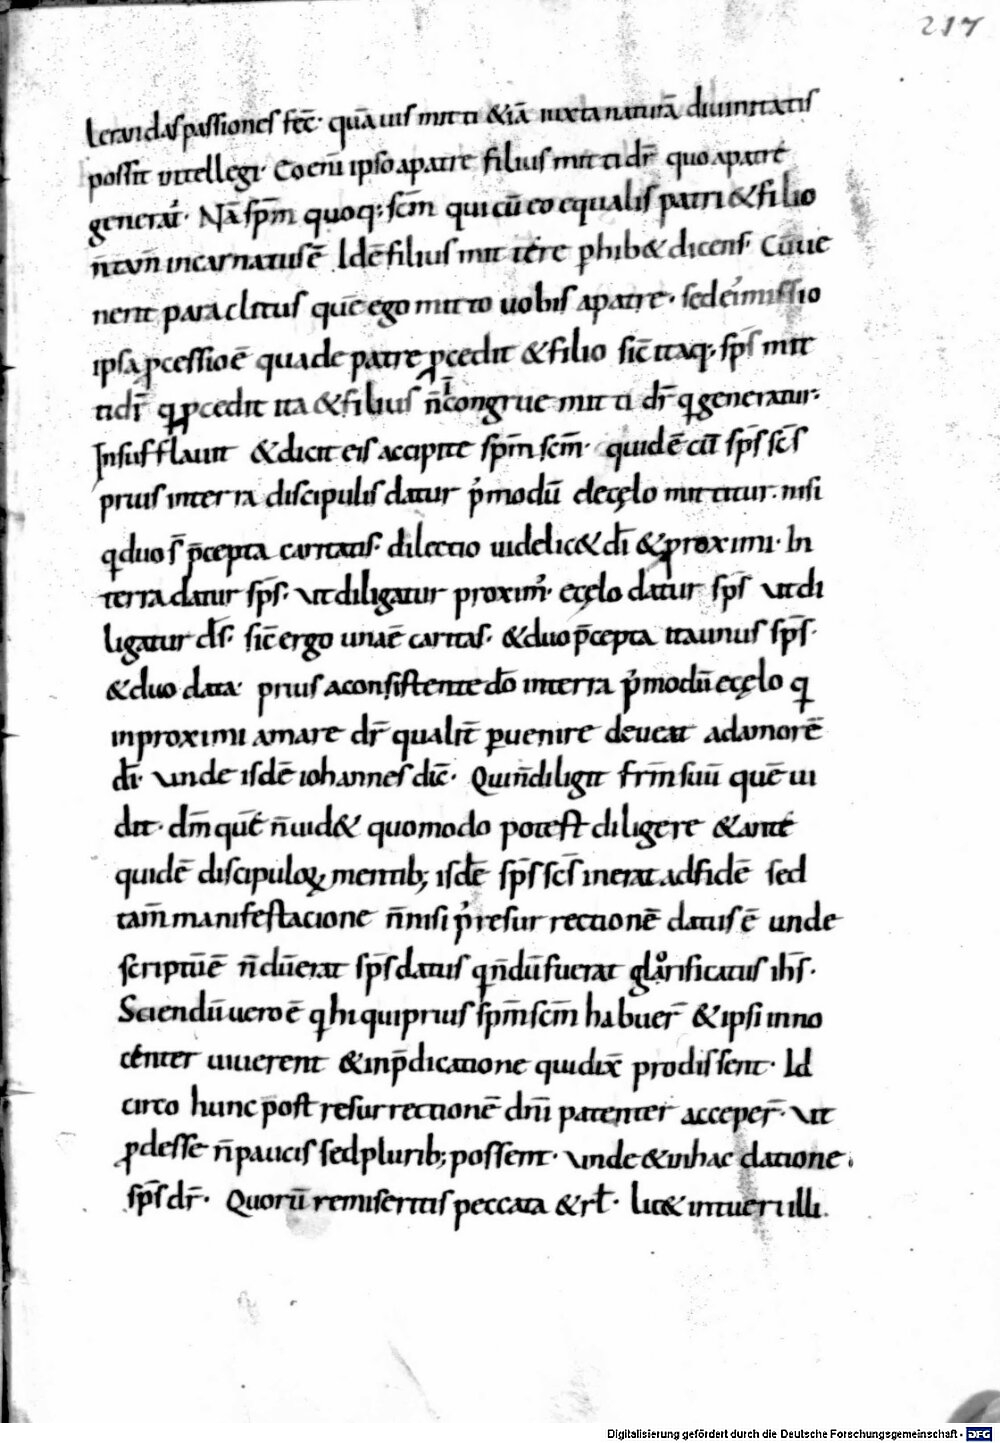 217
lerandas passiones fec̄· quā uis mitti &iā iuxta naturā diuinitatis
possit intellegi· Co enī ipso a patre filius mitti dr̄ quo a patre
generat̄· Nā sp̄m quoq; sc̄m qui cū eo equalis patri & filio
n̄ tam̄ incarnatus ē Idē filius mittere phib& dicens· Cū ue
nerit paraclitus quē ego mitto uobis a patre· sed ei᾽ missio
ipsa pcessio ē qua de patre pcedit & filio sic̄ itaq; sp̄s mit
ti dr̄ q pcedit ita & filius n̄ īcongrue mitti dr̄ q generatur·
Insufflauit & dicit eis accipite sp̄m sc̄m· quid ē cū sp̄s sc̄s
prius in terra discipulis datur p᾽modū de cęlo mittitur· nisi
q duo s̄ p̄cepta caritatis· dilectio uidelic& dī & proximi· In
terra datur sp̄s· ut diligatur proxim᾽· e cęlo datur sp̄s ut di
ligatur ds̄· sic̄ ergo una ē caritas· & duo p̄cepta ita unus sp̄s·
& duo data· prius a consistente dō in terra p᾽modū e cęlo q
in proximi amare dr̄ qualit̄ puenire deueat ad amorē
dī· Unde isdē iohannes dic̄· Qui n̄ diligit fr̄m suū quē ui
dit· dm̄ quē n̄ uid& quomodo potest diligere & ante
quidē discipuloꝝ mentib; isdē sp̄s sc̄s inerat ad fidē sed
tam̄ manifestacione n̄ nisi p᾽ resurrectionē datus ē unde
scriptū ē n̄dū erat sp̄s datus q n̄dū fuerat glorificatus ihs̄·
Sciendū uero ē q hi qui prius sp̄m sc̄m habuer̄ & ipsi inno
center uiuerent & in p̄dicatione quidix̄ prodissent· Id
circo hunc post resurrectionē dnī patenter acceper̄· Ut
pdesse n̄ paucis sed plurib; possent· Unde & in hac datione
sp̄s dr̄· Quorū remiseritis peccata & rł· lic& intueri illi
Digitalisierung gefördert durch die Deutsche Forschungsgemeinschaft - DFG